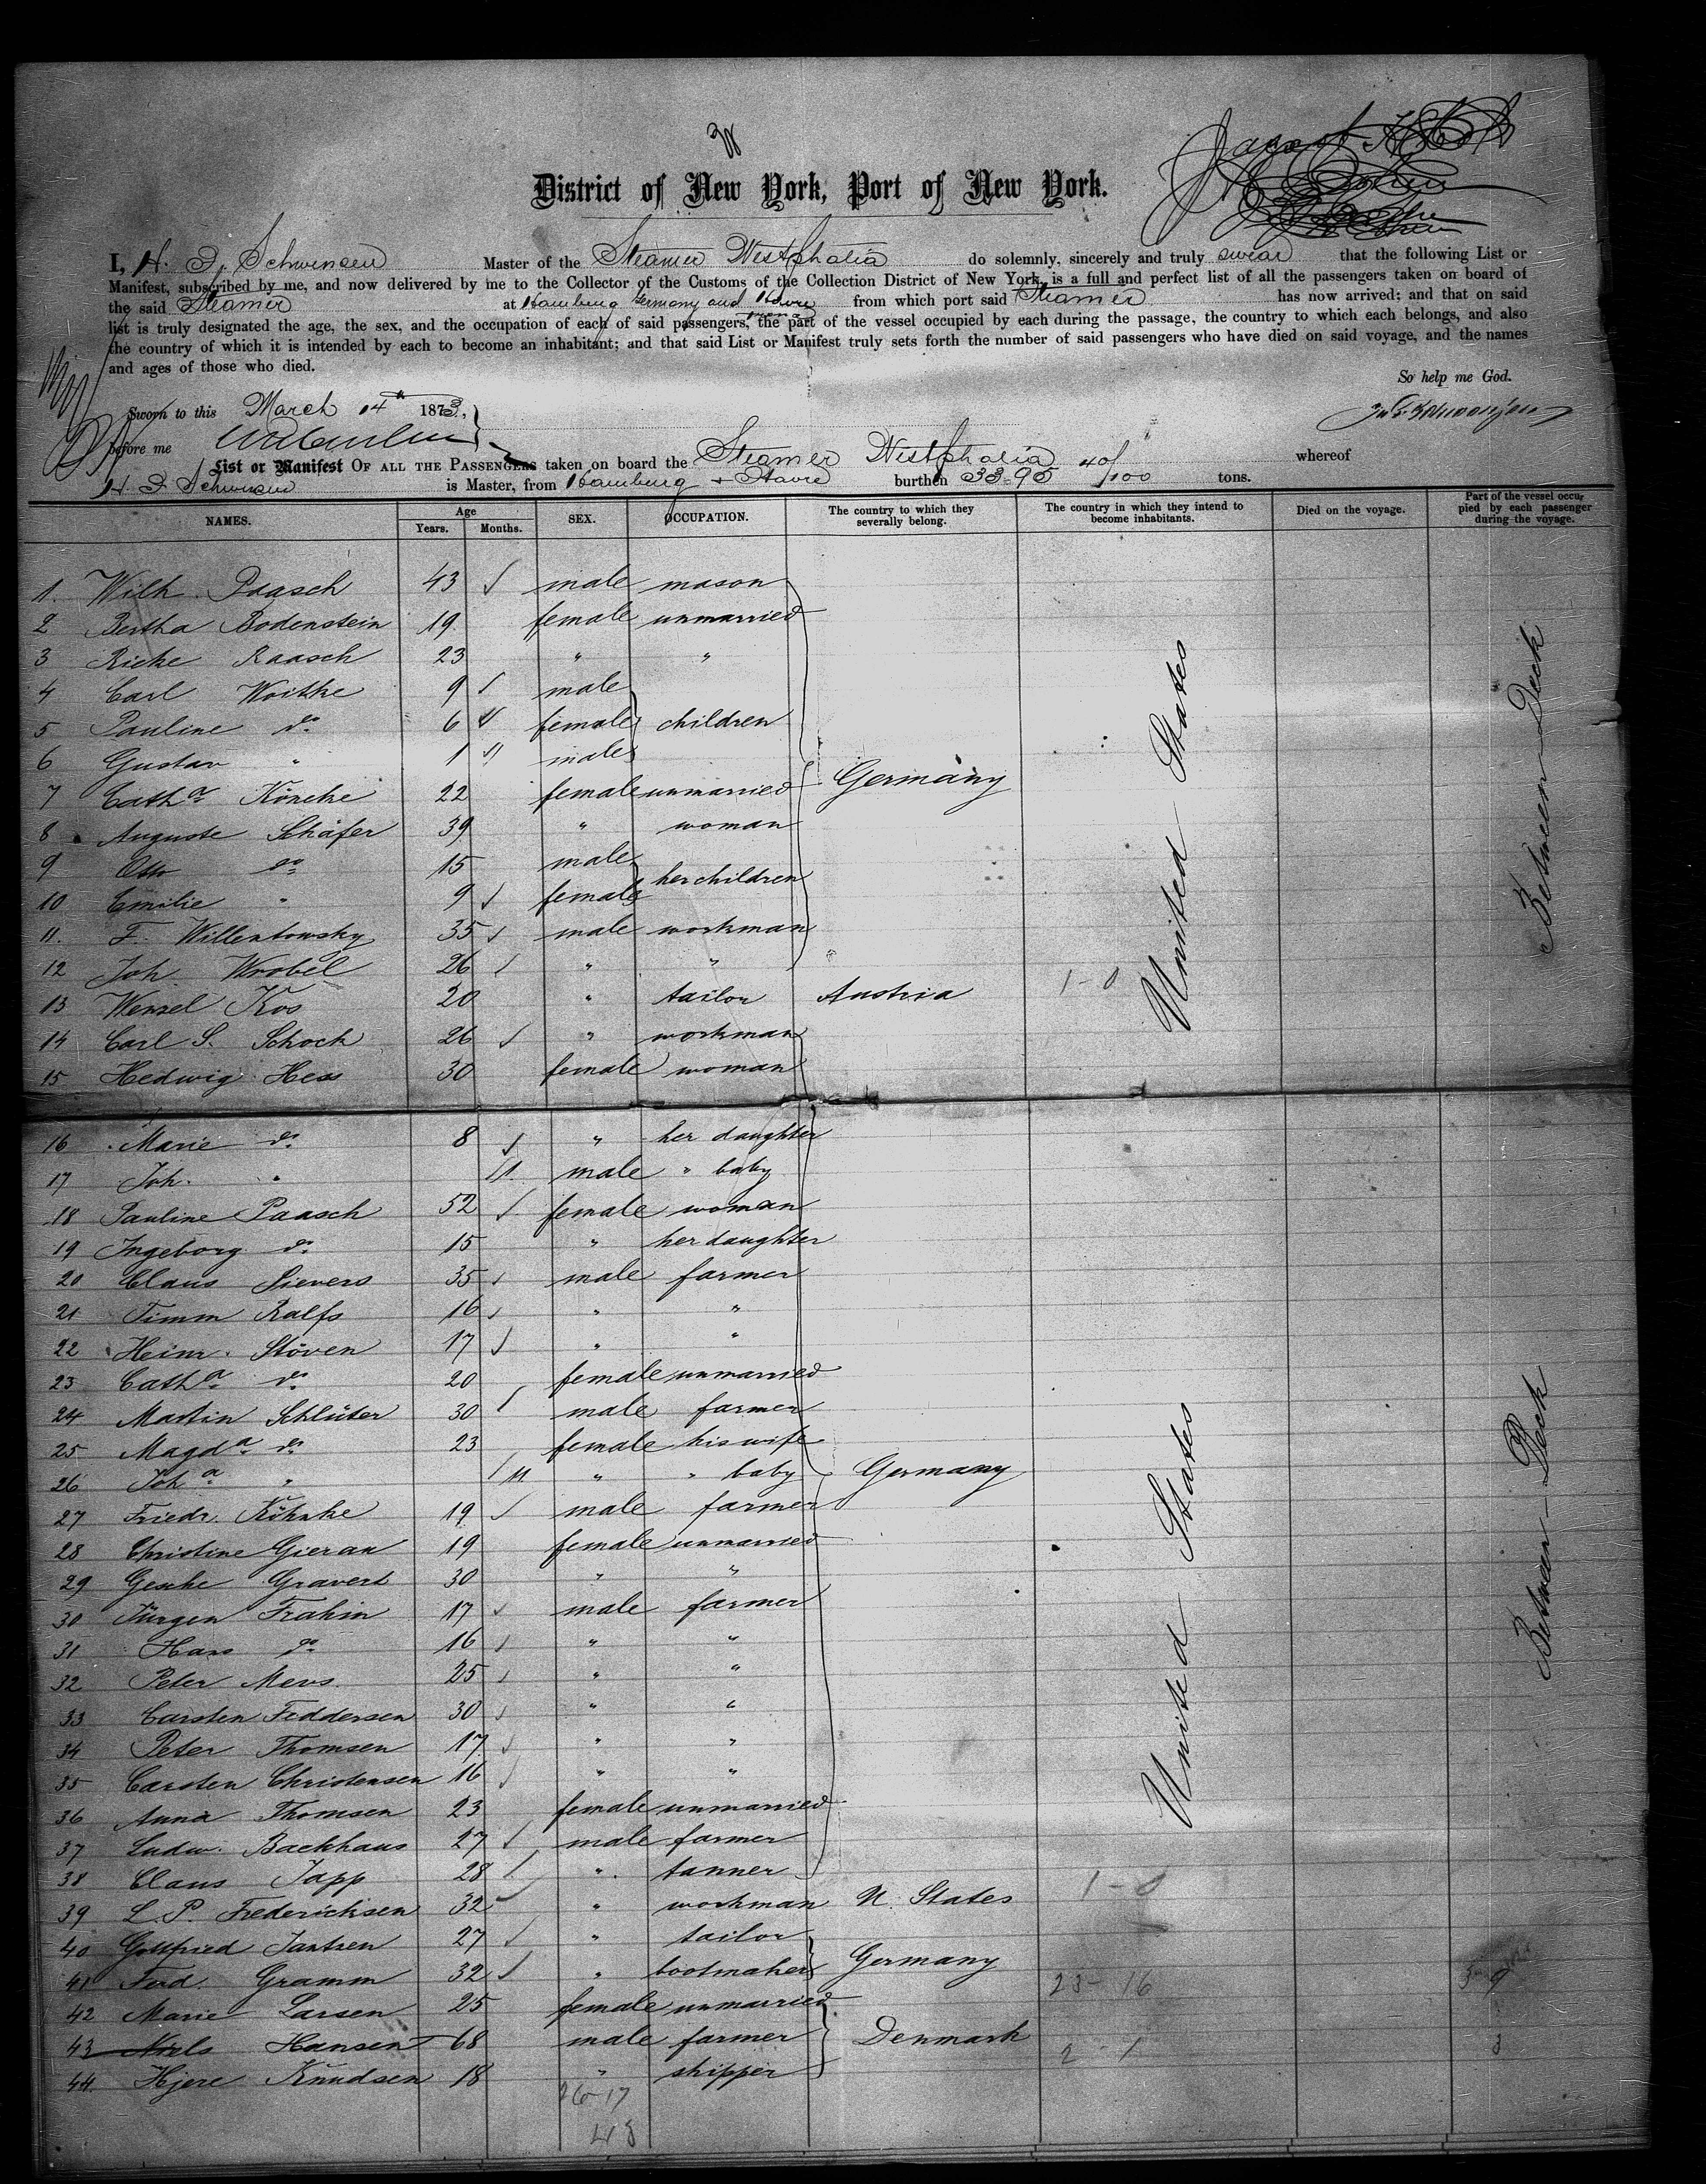 38
District of New York, Port of New York.
I, H. F. Schwensen Master of the Steamer Westphalia do solemnly, sincerely and truly swear that the following List or
Manifest, subscribed by me, and now delivered by me to the Collector of the Customs of the Collection District of New York, is a full and perfect list of all the passengers taken on board of
the said Steamer at Hamburg Germany and Havre from which port said Steamer has now arrived; and that on said
list is truly designated the age, the sex, and the occupation of each of said passengers, the part of the vessel occupied by each during the passage, the country to which each belongs, and also
the country of which it is intended by each to become an inhabitant; and that said List or Manifest truly sets forth the number of said passengers who have died on said voyage, and the names
and ages of those who died.
So help me God.
Sworn to this March 14th 1873,
before me
List or Manifest OF ALL THE PASSENGERS taken on board the Steamer Westphalia whereof
H. F. Schwensen is Master, from Hamburg + Havre burthen 3395 40/100 tons.
NAMES. Age Years. Months. SEX. OCCUPATION. The country to which they severally belong. The country in which they intend to become inhabitants. Died on the voyage. Part of the vessel occupied by each passenger during the voyage.
1. Wilh. Paasch 43 male mason
2 Bertha Bodenstein 19 female unmarried
3 Rieke Raasch 23 " "
4 Carl Woithe 9 male
5 Pauline do 6 female children
6 Gustav " 1 male
7 Catha Köncke 22 female unmarried Germany
8 Auguste Schäfer 39 " woman
9 Otto do 15 male
her children
10 Emilie " 9 female
11. F. Willentowsky 35 male workman
12 Joh. Wrobel 26 " "
13 Wenzel Kos 20 " tailor Austria 1-0
14 Carl S. Schock 26 " workman
15 Hedwig Hess 30 female woman
United States
Between Deck
16 Marie do 8 " her daughter
17 Joh. " 11. male " baby
18 Pauline Paasch 52 female woman
19 Ingeborg do 15 " her daughter
20 Claus Sievers 35 male farmer
21 Timm Ralfs 16 " "
22 Heinr. Stöven 17 " "
23 Catha do 20 female unmarried
24 Martin Schlüter 30 male farmer
25 Magda do 23 female his wife
26 Joha " 11 " " baby Germany
27 Friedr. Köhnke 19 male farmer
28 Christine Gieran 19 female unmarried
29 Gesche Gravert 30 " "
30 Jürgen Frahm 17 male farmer
31 Hans do 16 " "
32 Peter Mews 25 " "
33 Carsten Feddersen 30 " "
34 Peter Thomsen 17 " "
35 Carsten Christensen 16 " "
36 Anna Thomsen 23 female unmarried
37 Ludw. Backhaus 27 male farmer
38 Claus Japp 28 " tanner
39 L. P. Frederichsen 32 " workman U. States 1-0
40 Gottfried Jantzen 27 " tailor
41 Ferd. Gramm 32 " bootmaker Germany 23-16
42 Marie Larsen 25 female unmarried
43 Niels Hansen 68 male farmer Denmark 2-1
44. Hjere Knudsen 18 " shipper
United States
Between Deck
26-17
43